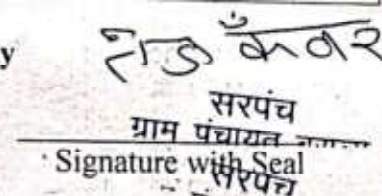 y
कँवर
सरपंच
ग्राम पंचायत
Signature with Seal
सरपंच